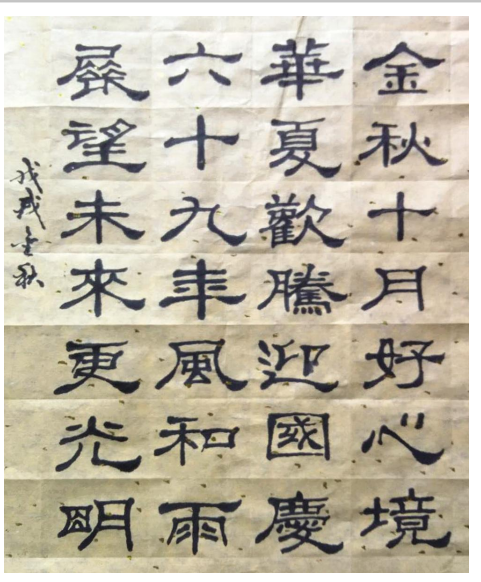 金秋十月好心境
華夏歡騰迎國慶
六十九年風和雨
展望未來更光明
戊戌金秋